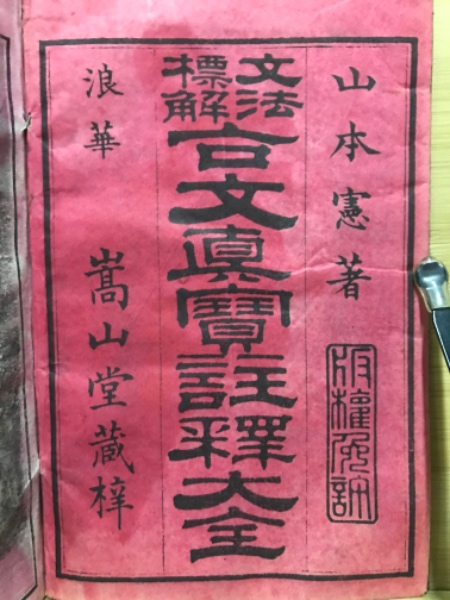 山本憲著
版權免許
文法
標解
古文眞寶註釋大全
浪華 嵩山堂蔵梓